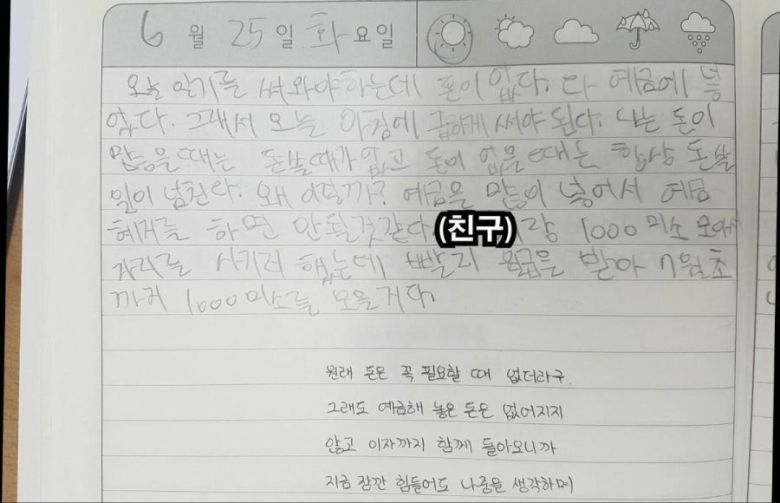 6 월 25 일 화 요일
오늘 일기를 써와야하는데 돈이 없다. 다 예금에 넣
었다. 그래서 오늘 아침에 급하게 써야 된다. 나는 돈이
많을때는 돈쓸때가 없고 돈이 없을때는 항상 돈쓸
일이 넘친다. 왜 이럴까? 예금은 많이 넣어서 예금
해지를 하면 안될것같다 (친구)랑 1000미소 모아서
자리를 사기러 했는데 빨리 월급을 받아 7월초
까지 1000미소를 모을거다.
원래 돈은 꼭 필요할 때 없더라구.
그래도 예금해 놓은 돈은 없어지지
않고 이자까지 함께 돌아오니까
지금 잠깐 힘들어도 나중을 생각하며